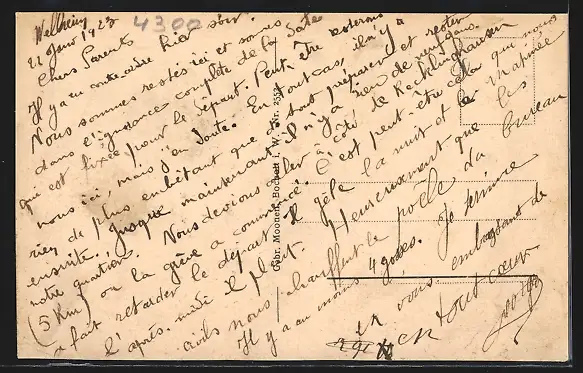 Wellheim
22 Janv 1923
4300
Chers Parents
Il y a eu contre ordre hier soir.
Nous sommes restés ici et sommes
dans l'ignorance complète de la date
qui est fixée pour le départ. Peut-être
nous ici, mais j'en doute. En tout cas, il n'y a
rien de plus embêtant que de tout préparer et rester
ensuite. Jusque maintenant il n'y a rien de neuf dans
notre quartier. Nous devions aller à côté de Recklinghausen
(5 Km) où la grève a commencé. C'est peut-être cela qui nous
a fait retarder le départ. Il gèle la nuit et la matinée
l'après-midi il pleut. Heureusement que les
civils nous chauffent le poêle du bureau
Il y a au moins 4 gosses. Je termine
en vous embrassant de
en tout cœur
Gebr. Moonen, Bocholt i. W. Nr. 2552